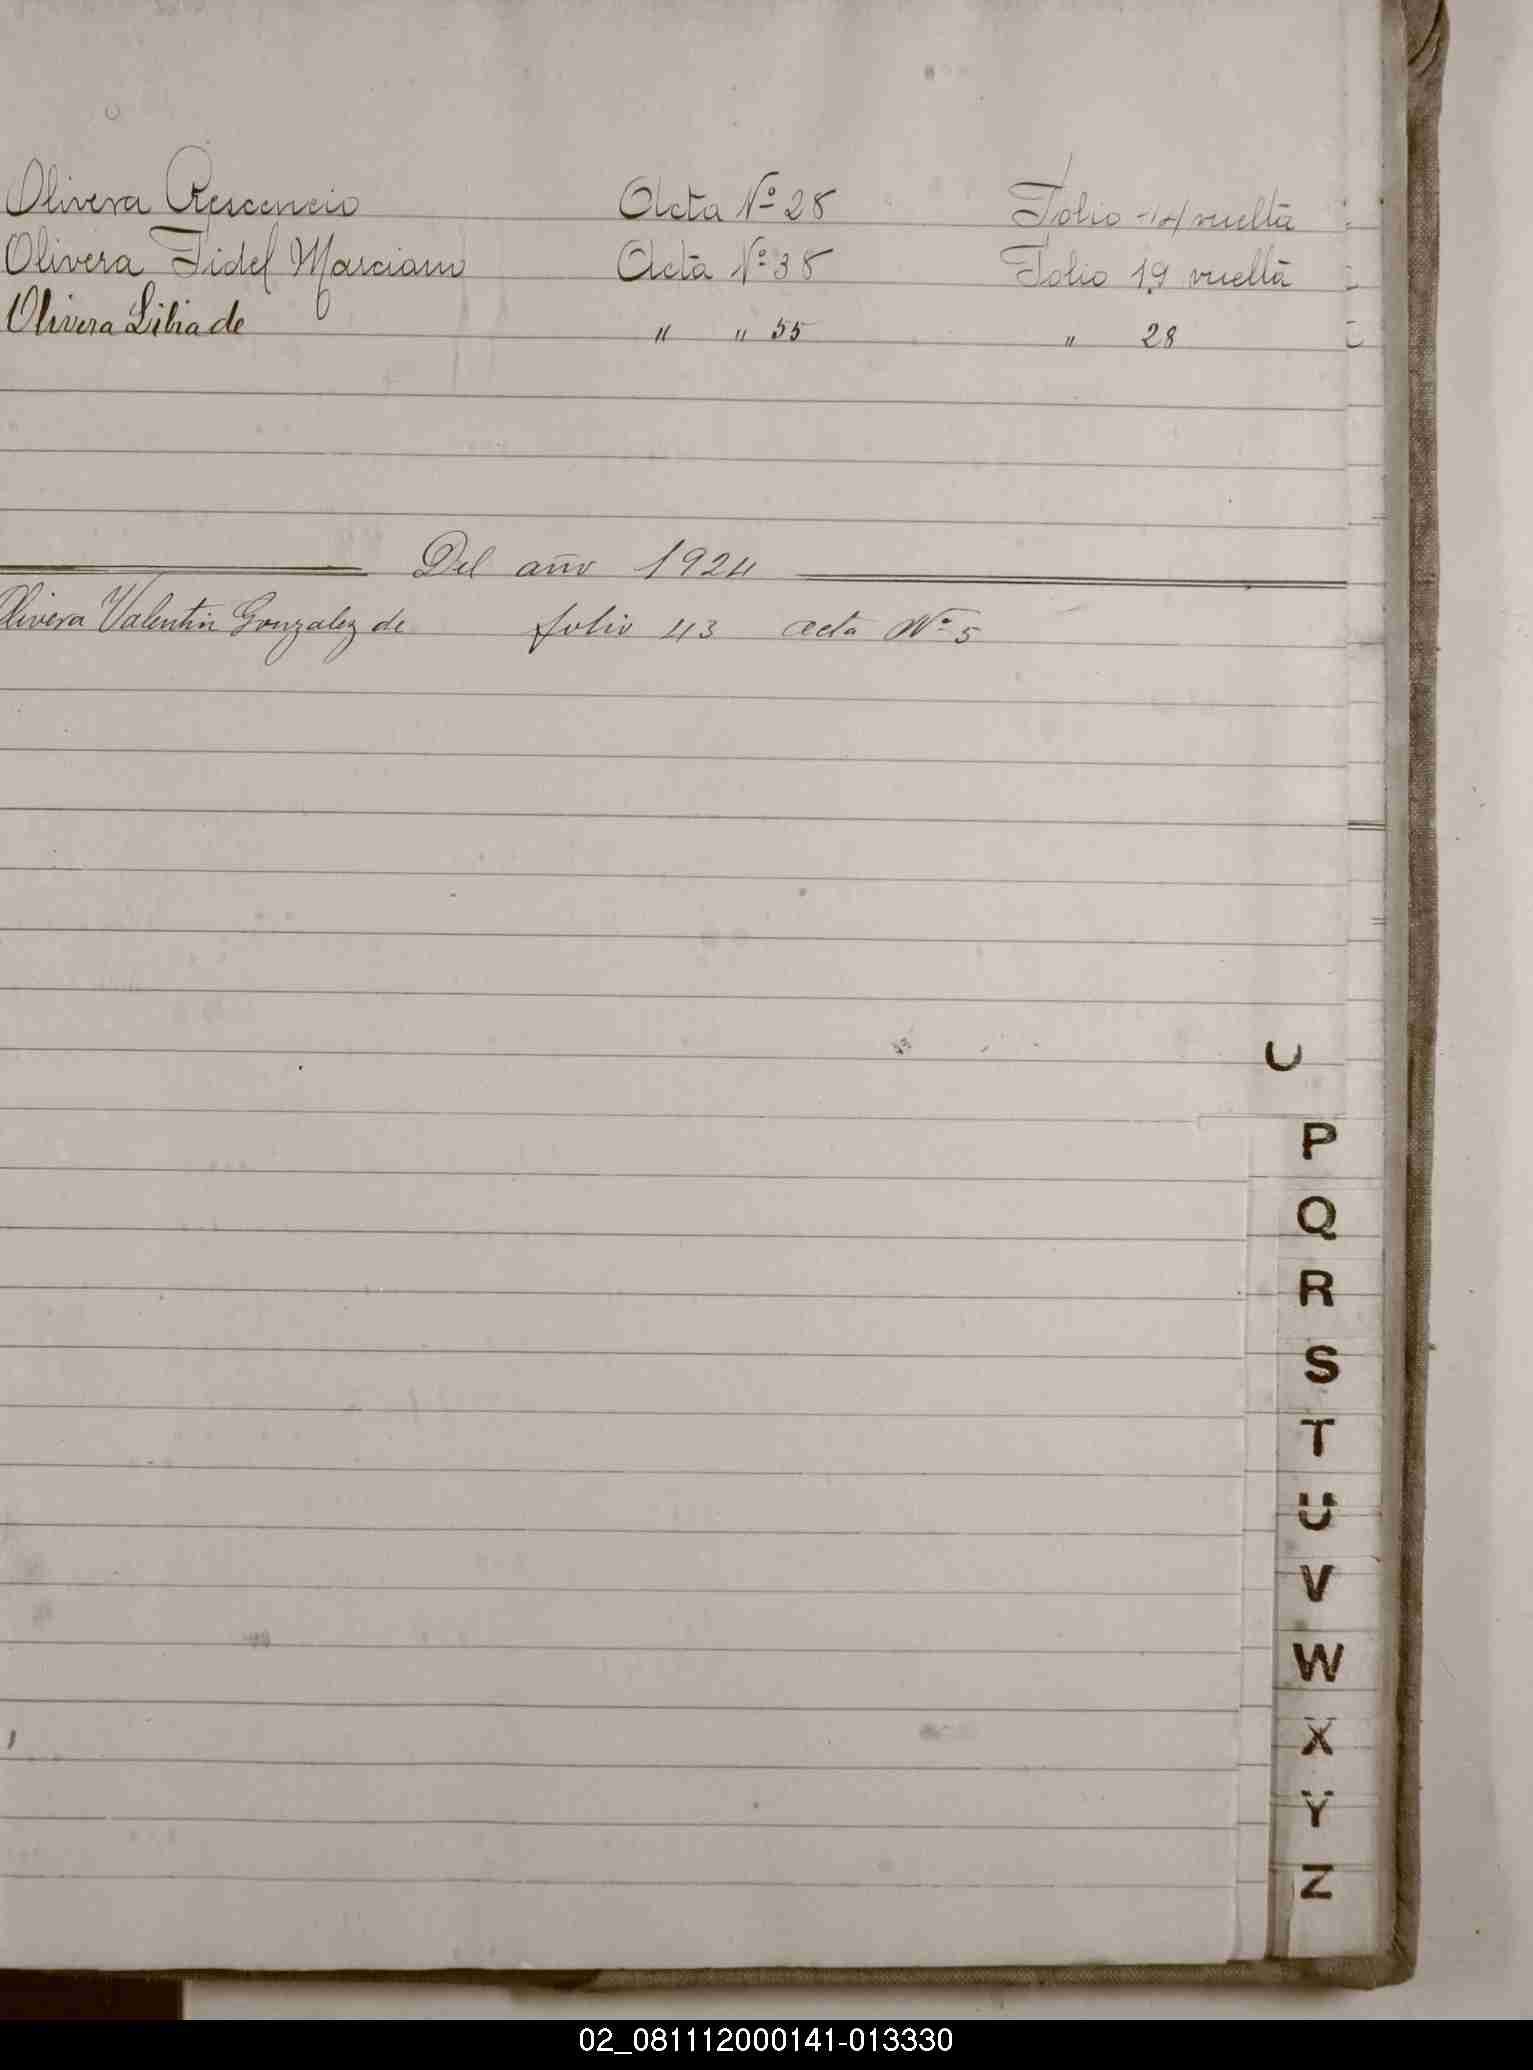 Olivera Crescencio Acta Nº 28 Folio 14 vuelta
Olivera Fidel Marciano Acta Nº 38 Folio 19 vuelta
Olivera Lilia de " " 55 " 28
Del año 1924
Olivera Valentin Gonzalez de folio 43 acta Nº 5
P
Q
R
S
T
U
V
W
X
Y
Z
02_081112000141-013330